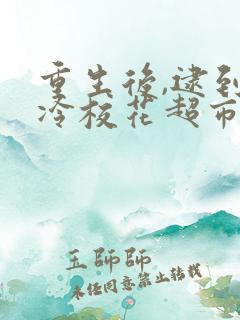 重生後,逮到
冷校花超市
王師師
未经同意禁止转载